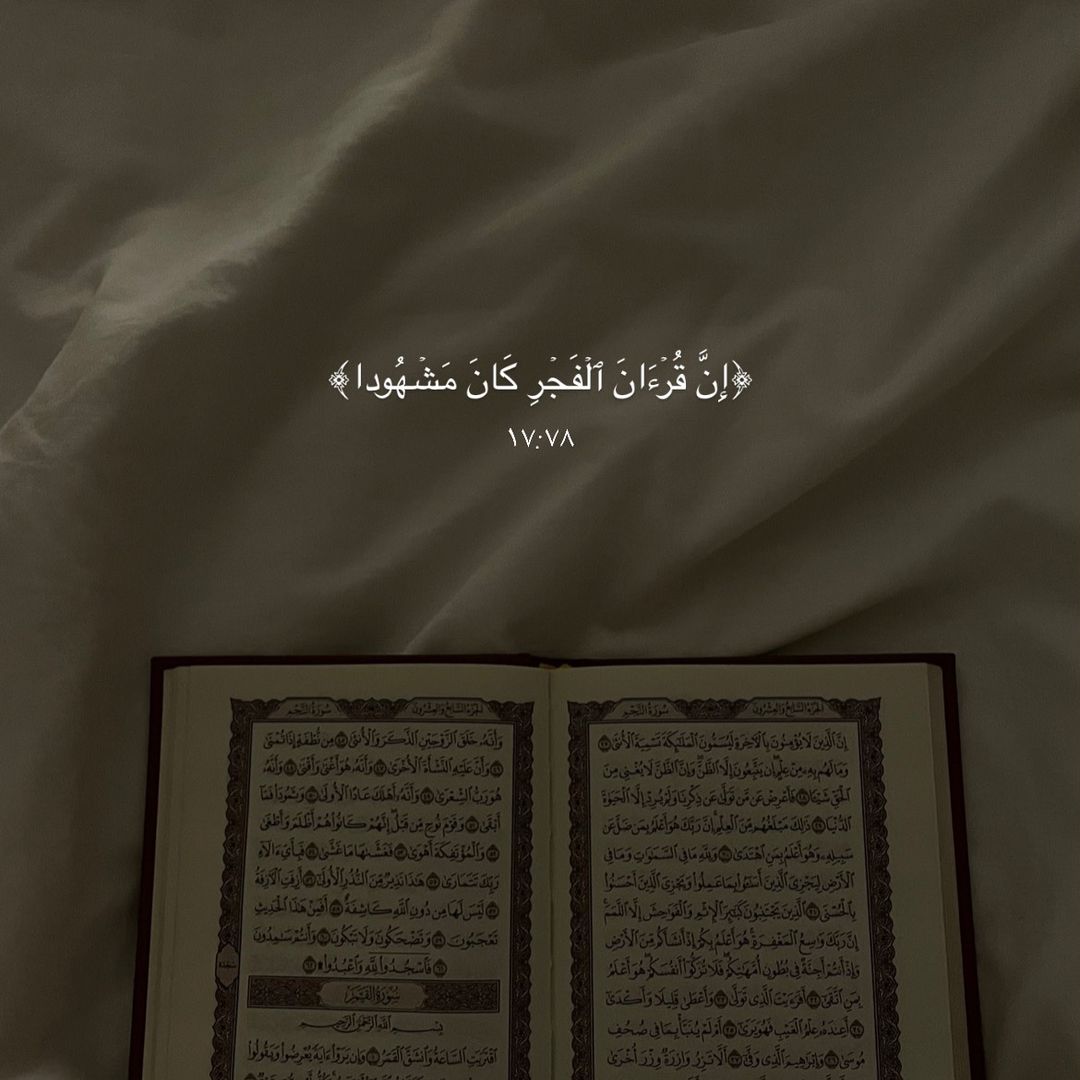 ﴿إِنَّ قُرْءَانَ ٱلْفَجْرِ كَانَ مَشْهُودا﴾
١٧:٧٨
الجزء السابع والعشرون سورة النجم
إِنَّ ٱلَّذِينَ لَا يُؤْمِنُونَ بِٱلْءَاخِرَةِ لَيُسَمُّونَ ٱلْمَلَٰٓئِكَةَ تَسْمِيَةَ ٱلْأُنثَىٰ ٢٧
وَمَا لَهُم بِهِۦ مِنْ عِلْمٍ إِن يَتَّبِعُونَ إِلَّا ٱلظَّنَّ وَإِنَّ ٱلظَّنَّ لَا يُغْنِى مِنَ
ٱلْحَقِّ شَيْـًٔا ٢٨ فَأَعْرِضْ عَن مَّن تَوَلَّىٰ عَن ذِكْرِنَا وَلَمْ يُرِدْ إِلَّا ٱلْحَيَوٰةَ
ٱلدُّنْيَا ٢٩ ذَٰلِكَ مَبْلَغُهُم مِّنَ ٱلْعِلْمِ إِنَّ رَبَّكَ هُوَ أَعْلَمُ بِمَن ضَلَّ عَن
سَبِيلِهِۦ وَهُوَ أَعْلَمُ بِمَنِ ٱهْتَدَىٰ ٣٠ وَلِلَّهِ مَا فِى ٱلسَّمَٰوَٰتِ وَمَا فِى
ٱلْأَرْضِ لِيَجْزِىَ ٱلَّذِينَ أَسَٰٓـُٔوا۟ بِمَا عَمِلُوا۟ وَيَجْزِىَ ٱلَّذِينَ أَحْسَنُوا۟
بِٱلْحُسْنَى ٣١ ٱلَّذِينَ يَجْتَنِبُونَ كَبَٰٓئِرَ ٱلْإِثْمِ وَٱلْفَوَٰحِشَ إِلَّا ٱللَّمَمَ
إِنَّ رَبَّكَ وَٰسِعُ ٱلْمَغْفِرَةِ هُوَ أَعْلَمُ بِكُمْ إِذْ أَنشَأَكُم مِّنَ ٱلْأَرْضِ
وَإِذْ أَنتُمْ أَجِنَّةٌ فِى بُطُونِ أُمَّهَٰتِكُمْ فَلَا تُزَكُّوٓا۟ أَنفُسَكُمْ هُوَ أَعْلَمُ
بِمَنِ ٱتَّقَىٰٓ ٣٢ أَفَرَءَيْتَ ٱلَّذِى تَوَلَّىٰ ٣٣ وَأَعْطَىٰ قَلِيلًا وَأَكْدَىٰٓ
٣٤ أَعِندَهُۥ عِلْمُ ٱلْغَيْبِ فَهُوَ يَرَىٰٓ ٣٥ أَمْ لَمْ يُنَبَّأْ بِمَا فِى صُحُفِ
مُوسَىٰ ٣٦ وَإِبْرَٰهِيمَ ٱلَّذِى وَفَّىٰٓ ٣٧ أَلَّا تَزِرُ وَازِرَةٌ وِزْرَ أُخْرَىٰ
الجزء السابع والعشرون سورة النجم
وَأَنَّهُۥ خَلَقَ ٱلزَّوْجَيْنِ ٱلذَّكَرَ وَٱلْأُنثَىٰ ٤٥ مِن نُّطْفَةٍ إِذَا تُمْنَىٰ
٤٦ وَأَنَّ عَلَيْهِ ٱلنَّشْأَةَ ٱلْأُخْرَىٰ ٤٧ وَأَنَّهُۥ هُوَ أَغْنَىٰ وَأَقْنَىٰ ٤٨ وَأَنَّهُۥ
هُوَ رَبُّ ٱلشِّعْرَىٰ ٤٩ وَأَنَّهُۥٓ أَهْلَكَ عَادًا ٱلْأُولَىٰ ٥٠ وَثَمُودَا۟ فَمَآ
أَبْقَىٰ ٥١ وَقَوْمَ نُوحٍ مِّن قَبْلُ إِنَّهُمْ كَانُوا۟ هُمْ أَظْلَمَ وَأَطْغَىٰ
٥٢ وَٱلْمُؤْتَفِكَةَ أَهْوَىٰ ٥٣ فَغَشَّىٰهَا مَا غَشَّىٰ ٥٤ فَبِأَىِّ ءَالَآءِ
رَبِّكَ تَتَمَارَىٰ ٥٥ هَٰذَا نَذِيرٌ مِّنَ ٱلنُّذُرِ ٱلْأُولَىٰٓ ٥٦ أَزِفَتِ ٱلْءَازِفَةُ
٥٧ لَيْسَ لَهَا مِن دُونِ ٱللَّهِ كَاشِفَةٌ ٥٨ أَفَمِنْ هَٰذَا ٱلْحَدِيثِ
تَعْجَبُونَ ٥٩ وَتَضْحَكُونَ وَلَا تَبْكُونَ ٦٠ وَأَنتُمْ سَٰمِدُونَ
٦١ فَٱسْجُدُوا۟ لِلَّهِ وَٱعْبُدُوا۟ ۩ ٦٢
سجدة
سورة القمر
بِسْمِ ٱللَّهِ ٱلرَّحْمَٰنِ ٱلرَّحِيمِ
ٱقْتَرَبَتِ ٱلسَّاعَةُ وَٱنشَقَّ ٱلْقَمَرُ ١ وَإِن يَرَوْا۟ ءَايَةً يُعْرِضُوا۟ وَيَقُولُوا۟